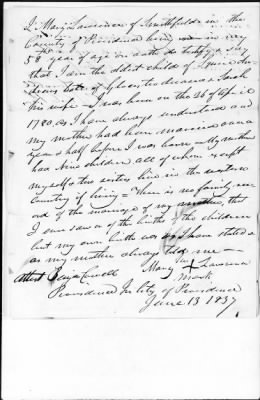 I Mary Lawrence of Smithfield in the
County of Providence being now in my
58 year of age on oath do testify & say
that I am the oldest child of
late of Glocester deceased & Sarah
his wife - I was born on the 26 of April
1780, as I have always understood and
my mother had been married once a
year & half before I was born - My mother
had nine children all of whom except
myself & two sisters live in the western
country if living = There is no family rec-
ord of the marriage of my mother, that
I ever saw or of the births of the children
but my own birth was as I have stated it
as my mother always told me -
Attest Benja Cowell Mary her Lawrence
X mark
Providence In City of Providence
June 13 1837